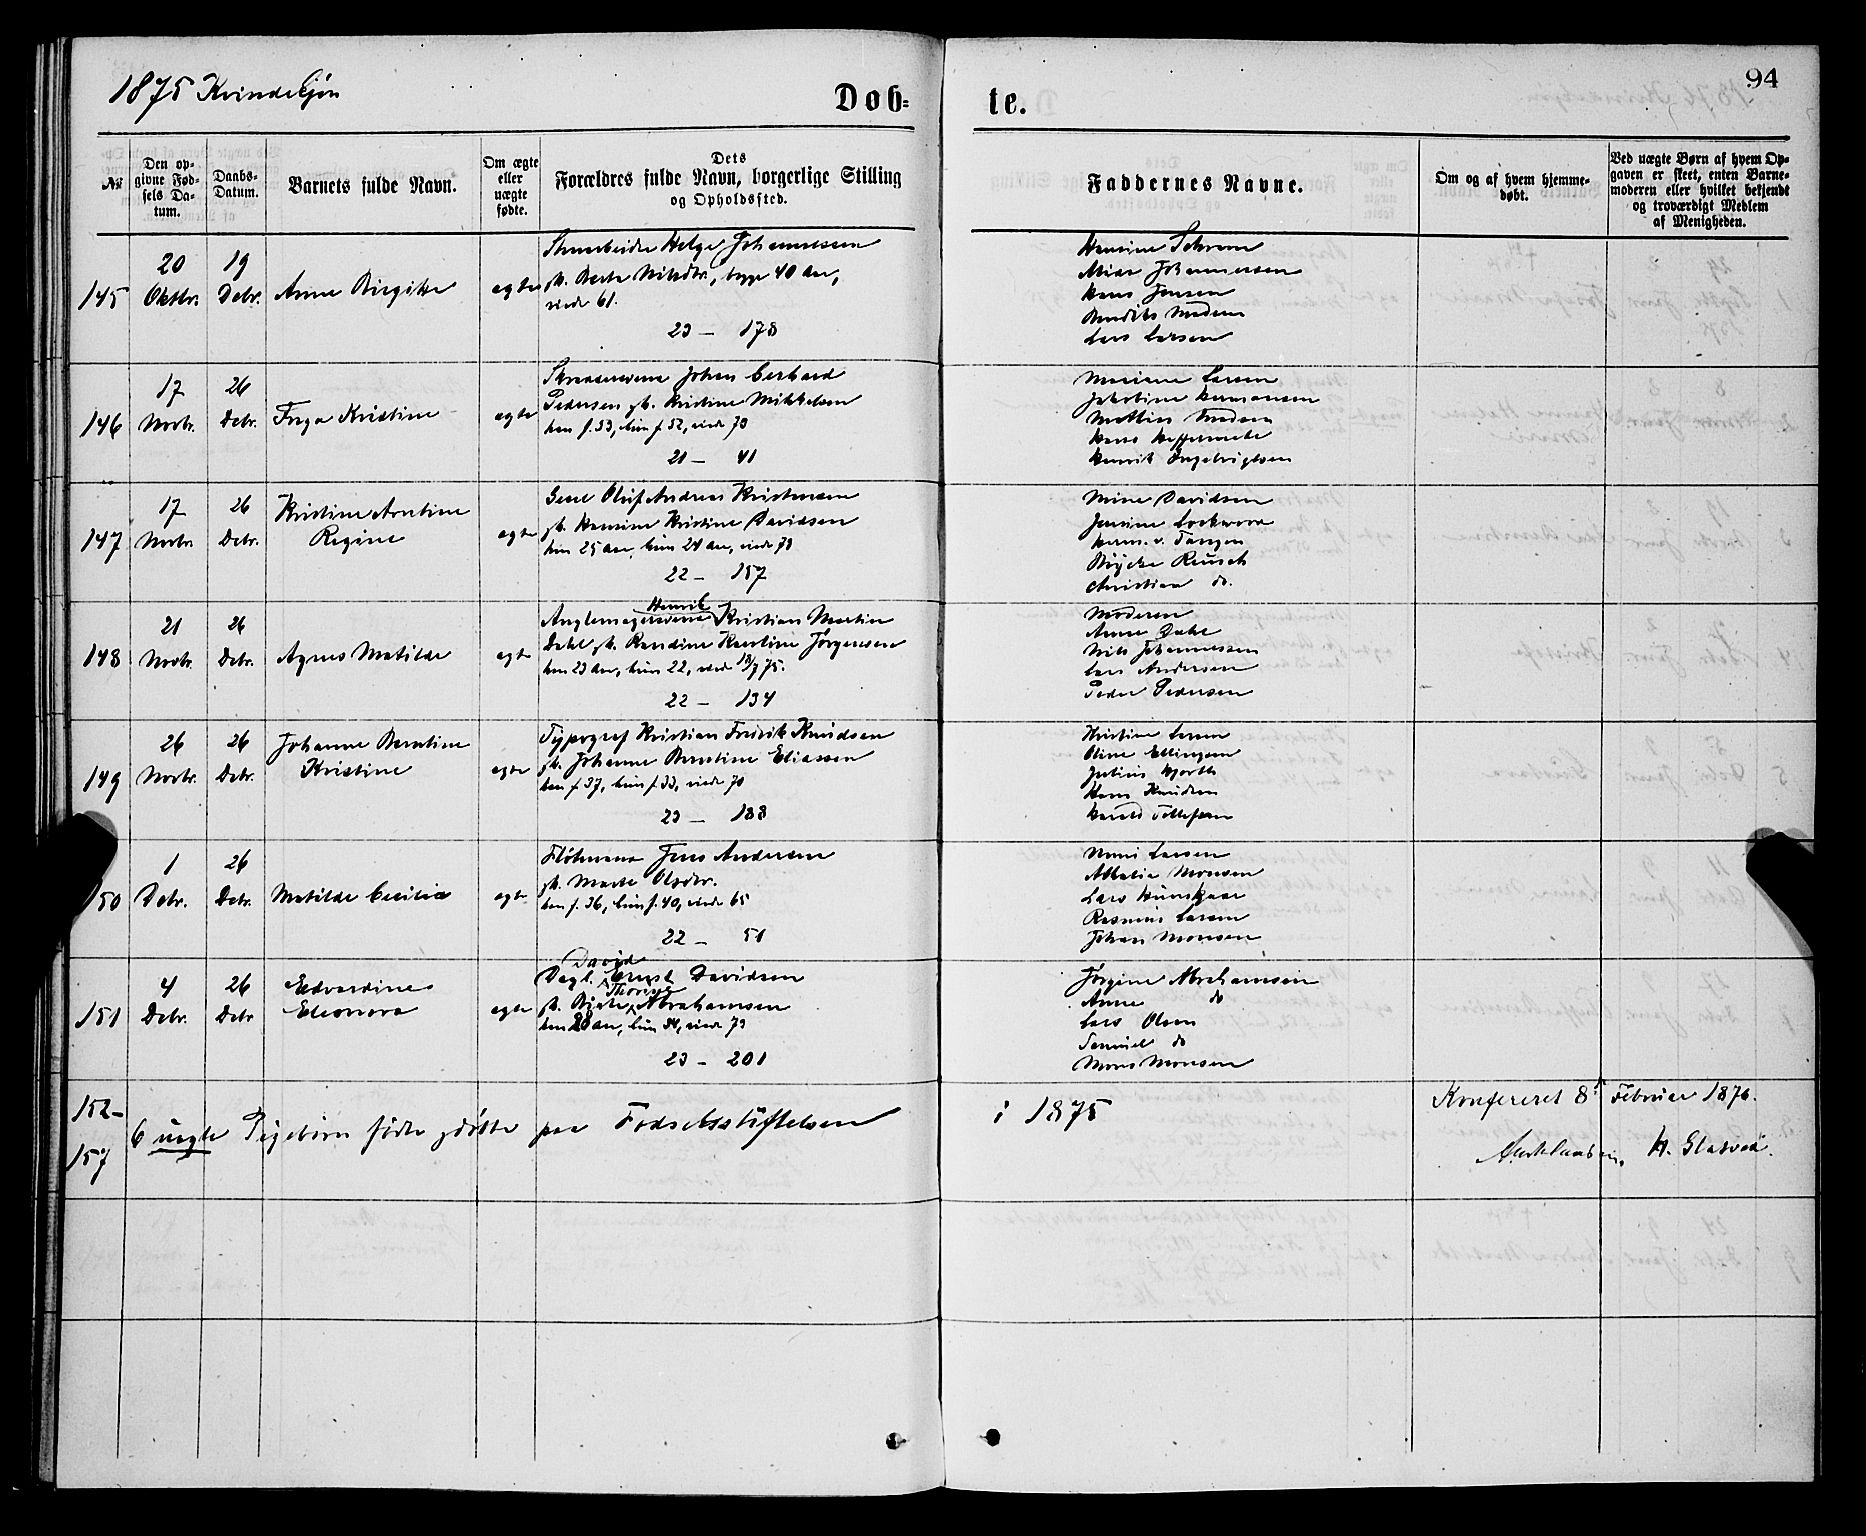 1875 Kvindekjøn
Døb-
te.
94
No
Den op-
givne Fød-
sels Da-
tum.
Daabs-
Datum.
Barnets fulde Navn.
Om ægte
eller
uægte
fødte.
Dets
Forældres fulde Navn, borgerlige Stilling
og Opholdssted.
Faddernes Navne.
Om og af hvem hjemme-
døbt.
Ved uægte Børn af hvem Op-
gaven er skeet, enten Barne-
moderen eller hvilket bekjendt
og troværdigt Medlem
af Menigheden.
145
20
Oktbr.
19
Debr.
Anne Birgitte
egte
Helge Johannessen
gt. Berte Nilsdtr., begge 40 Aar,
viede 61.
23 – 178
Hansine
Johannessen
Hans Jensen
Madsen
Lars Larsen
146
17
Novbr.
26
Debr.
Kristine
egte
Johan Gerhard
Pedersen gt. Kristine Mikkelsen
han f. 53, hun f. 52, viede 73
21 – 41
Mariane Larsen
Jakobine Hermansen
Mathias Madsen
Hans
Henrik Ingebrigtsen
147
17
Novbr.
26
Debr.
Kristine Arntine
Regine
egte
Oluf Andreas Kristensen
gt. Hansine Kristine Davidsen
han 25 Aar, hun 24 Aar, viede 73
22 – 157
Mine Davidsen
Jensine
Herm. v. Tangen
Reusch
Christian do.
148
21
Novbr.
26
Debr.
Agnes Matilde
egte
Henrik
Kristian Martin
Dahl gt. Randine Kristine Jørgensen
han 23 Aar, hun 22, viede 18/7 75.
22 – 134
Moderen
Anne Dahl
Nils Johannessen
Lars Andersen
Peder Pedersen
149
26
Novbr.
26
Debr.
Johanne Berntine
Kristine
egte
Typograf Kristian Fredrik Knudsen
gt. Johanne Berntine Eliassen
han f. 37, hun f. 33, viede 70
23 – 188
Kristine Larsen
Oline Ellingsen
Julius Hjorth
Hans Knudsen
Harald Tollefsen
150
1
Debr.
26
Debr.
Matilde Cecilie
egte
Jens Andersen
gt. Marte Olsdtr.
han f. 36, hun f. 40, viede 65
22 – 51
Larsen
Monsen
Lars
Rasmus Larsen
Johan Monsen
151
4
Debr.
26
Debr
Edvardine
Eleonora
egte
David
Dagl. Ernst Davidsen
Thorine
gt. Abrahamsen
han 28 Aar, hun 34, viede 73
23 – 201
Jørgine Abrahamsen
Anne do
Lars Olsen
Samuel do
Mons Monsen
152–
157
6 uegte Pigebørn fødte og døbte paa Fødselsstiftelsen
i 1875
Konfereret 8d Februar 1876.